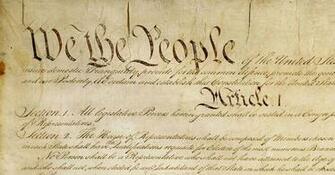 We the People of the United Sta
insure domestic Tranquility, provide for the common defence, promote the gene
and our Posterity, do ordain and establish this Constitution for the United States
Article I
Section 1. All legislative Powers herein granted shall be vested in a Congress
of Representatives.
Section 2. The House of Representatives shall be composed of Members chosen
in each State shall have Qualifications requisite for Electors of the most numerous Branch
No Person shall be a Representative who shall not have attained to the
and who shall not, when elected, be an Inhabitant of that State in which he shall